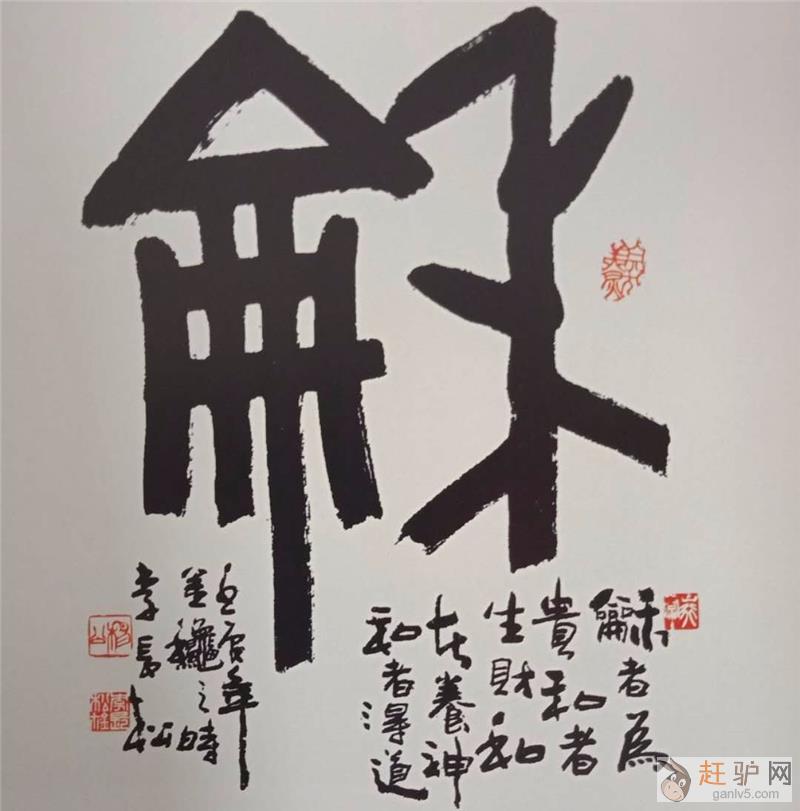 龢
龢者為
貴和者
生財和
者養神
和者得道
年
金龝之時
李長松
赶驴网
ganlv5.com